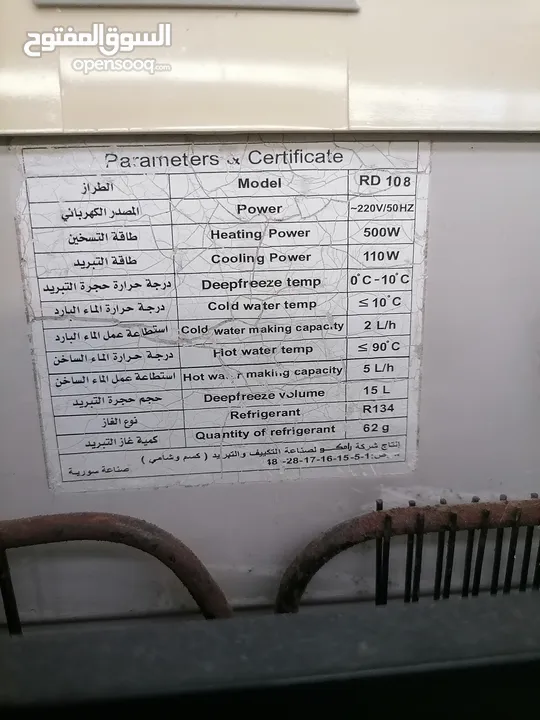 السوق المفتوح
opensooq.com
Parameters & Certificate
الطراز Model RD 108
المصدر الكهربائي Power ~220V/50HZ
طاقة التسخين Heating Power 500W
طاقة التبريد Cooling Power 110W
درجة حرارة حجرة التبريد Deepfreeze temp 0°C-10°C
درجة حرارة الماء البارد Cold water temp ≤ 10°C
استطاعة عمل الماء البارد Cold water making capacity 2 L/h
درجة حرارة الماء الساخن Hot water temp ≤ 90°C
استطاعة عمل الماء الساخن Hot making capacity 5 L/h
حجم حجرة التبريد Deepfreeze volume 15 L
نوع الغاز Refrigerant R134
كمية غاز التبريد Quantity of refrigerant 62 g
إنتاج شركة رامكو لصناعة التكييف والتبريد ( كسم وشامي )
ص: 1-5-15-16-17-28-
صناعة سورية